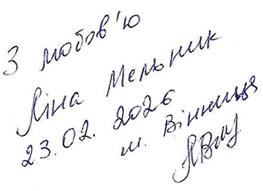 З любов'ю
Ліна Мельник
23.02.2026
м. Вінниця